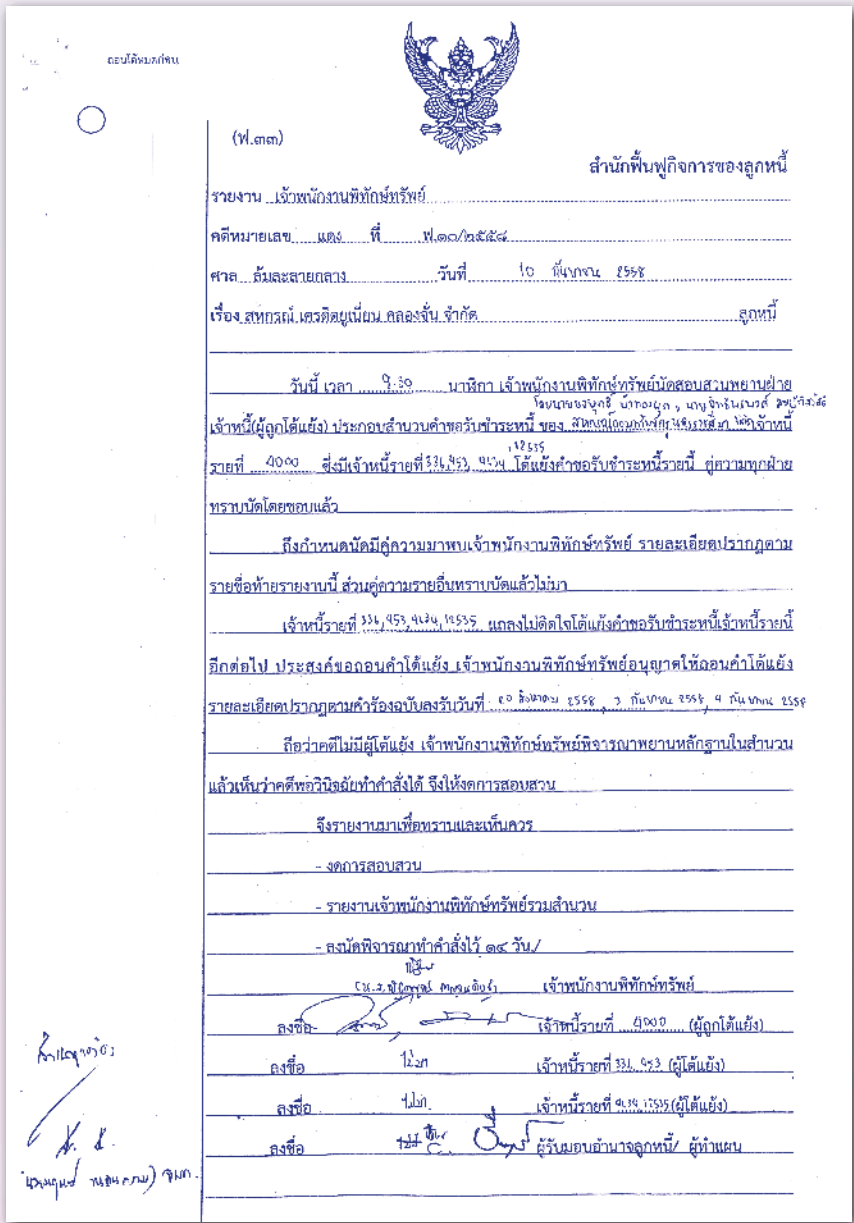 (ฟ.๓๓)
สำนักฟื้นฟูกิจการของลูกหนี้
รายงาน เจ้าพนักงานพิทักษ์ทรัพย์
คดีหมายเลข แดง ที่ ฟ.๑๐/๒๕๕๘
ศาล ล้มละลายกลาง วันที่ 10 กันยายน 2558
เรื่อง สหกรณ์ เครดิตยูเนี่ยน คลองจั่น จำกัด ลูกหนี้
วันนี้ เวลา 9.30 นาฬิกา เจ้าพนักงานพิทักษ์ทรัพย์นัดสอบสวนพยานฝ่าย
เจ้าหนี้(ผู้ถูกโต้แย้ง) ประกอบสำนวนคำขอรับชำระหนี้ ของ เจ้าหนี้
,12535
รายที่ 4000 ซึ่งมีเจ้าหนี้รายที่ 336,453, 4634 โต้แย้งคำขอรับชำระหนี้รายนี้ คู่ความทุกฝ่าย
ทราบนัดโดยชอบแล้ว
ถึงกำหนดนัดมีคู่ความมาพบเจ้าพนักงานพิทักษ์ทรัพย์ รายละเอียดปรากฏตาม
รายชื่อท้ายรายงานนี้ ส่วนคู่ความรายอื่นทราบนัดแล้วไม่มา
เจ้าหนี้รายที่ 336,453,4634,12535 แถลงไม่ติดใจโต้แย้งคำขอรับชำระหนี้เจ้าหนี้รายนี้
อีกต่อไป ประสงค์ขอถอนคำโต้แย้ง เจ้าพนักงานพิทักษ์ทรัพย์อนุญาตให้ถอนคำโต้แย้ง
รายละเอียดปรากฏตามคำร้องฉบับลงรับวันที่ 20 สิงหาคม 2558 , 3 กันยายน 2558, 4 กันยายน 2558
ถือว่าคดีไม่มีผู้โต้แย้ง เจ้าพนักงานพิทักษ์ทรัพย์พิจารณาพยานหลักฐานในสำนวน
แล้วเห็นว่าคดีพอวินิจฉัยทำคำสั่งได้ จึงให้งดการสอบสวน
จึงรายงานมาเพื่อทราบและเห็นควร
- งดการสอบสวน
- รายงานเจ้าพนักงานพิทักษ์ทรัพย์รวมสำนวน
- ลงนัดพิจารณาทำคำสั่งไว้ ๑๔ วัน./
เจ้าพนักงานพิทักษ์ทรัพย์
ลงชื่อ เจ้าหนี้รายที่ 4000 (ผู้ถูกโต้แย้ง)
ลงชื่อ ไม่มา เจ้าหนี้รายที่ 336, 453 (ผู้โต้แย้ง)
ลงชื่อ ไม่มา เจ้าหนี้รายที่ 4634,12535 (ผู้โต้แย้ง)
ลงชื่อ ผู้รับมอบอำนาจลูกหนี้/ ผู้ทำแผน